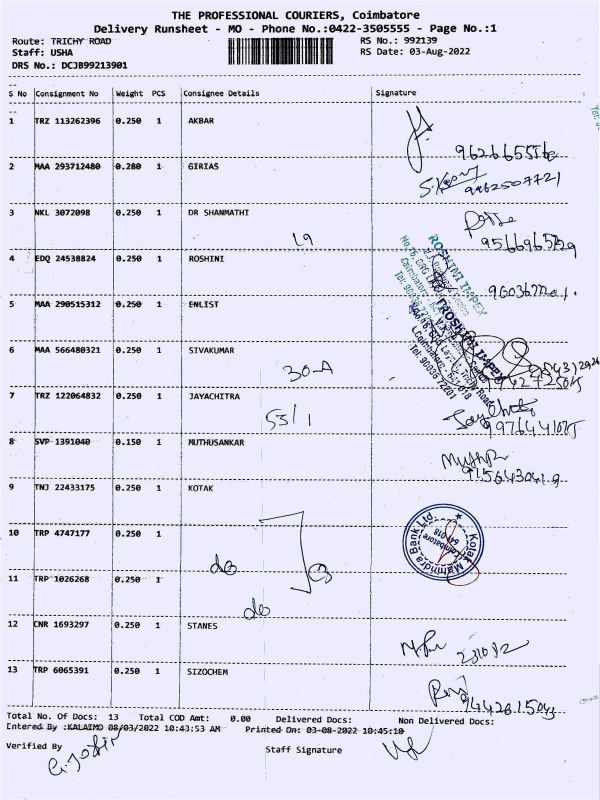 THE PROFESSIONAL COURIERS, Coimbatore
Delivery Runsheet - MO - Phone No.:0422-3505555 - Page No.:1
Route: TRICHY ROAD RS No.: 992139
Staff: USHA RS Date: 03-Aug-2022
DRS No.: DCJB99213901
S No Consignment No Weight PCS Consignee Details Signature
1 TRZ 113262396 0.250 1 AKBAR
2 MAA 293712480 0.280 1 GIRIAS
9962507721
3 NKL 3072098 0.250 1 DR SHANMATHI
19
4 EDQ 24538824 0.250 1 ROSHINI
ROSHINI IMPEX
5 MAA 290515312 0.250 1 ENLIST
6 MAA 566480321 0.250 1 SIVAKUMAR
30-A
7 TRZ 122064832 0.250 1 JAYACHITRA
53/1
8 SVP 1391040 0.150 1 MUTHUSANKAR
9 TNJ 22433175 0.250 1 KOTAK
Kotak Mahindra Bank Ltd.
Coimbatore
641 018
10 TRP 4747177 0.250 1
do
11 TRP 1026268 0.250 1
do
12 CNR 1693297 0.250 1 STANES
13 TRP 6065391 0.250 1 SIZOCHEM
Total No. Of Docs: 13 Total COD Amt: 0.00 Delivered Docs: Non Delivered Docs:
Entered By :KALAIMO 08/03/2022 10:43:53 AM Printed On: 03-08-2022 10:45:10
Verified By Staff Signature